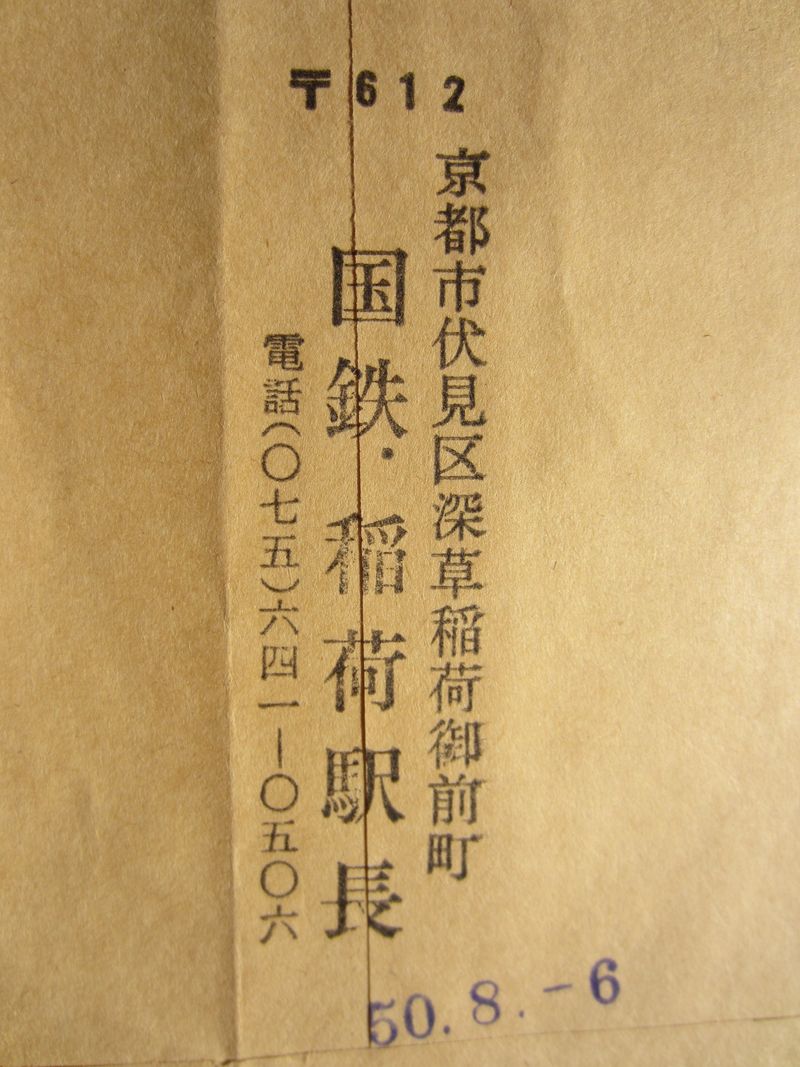 〒612
京都市伏見区深草稲荷御前町
国鉄・稲荷駅長
電話(〇七五)六四一-〇五〇六
50.8.-6